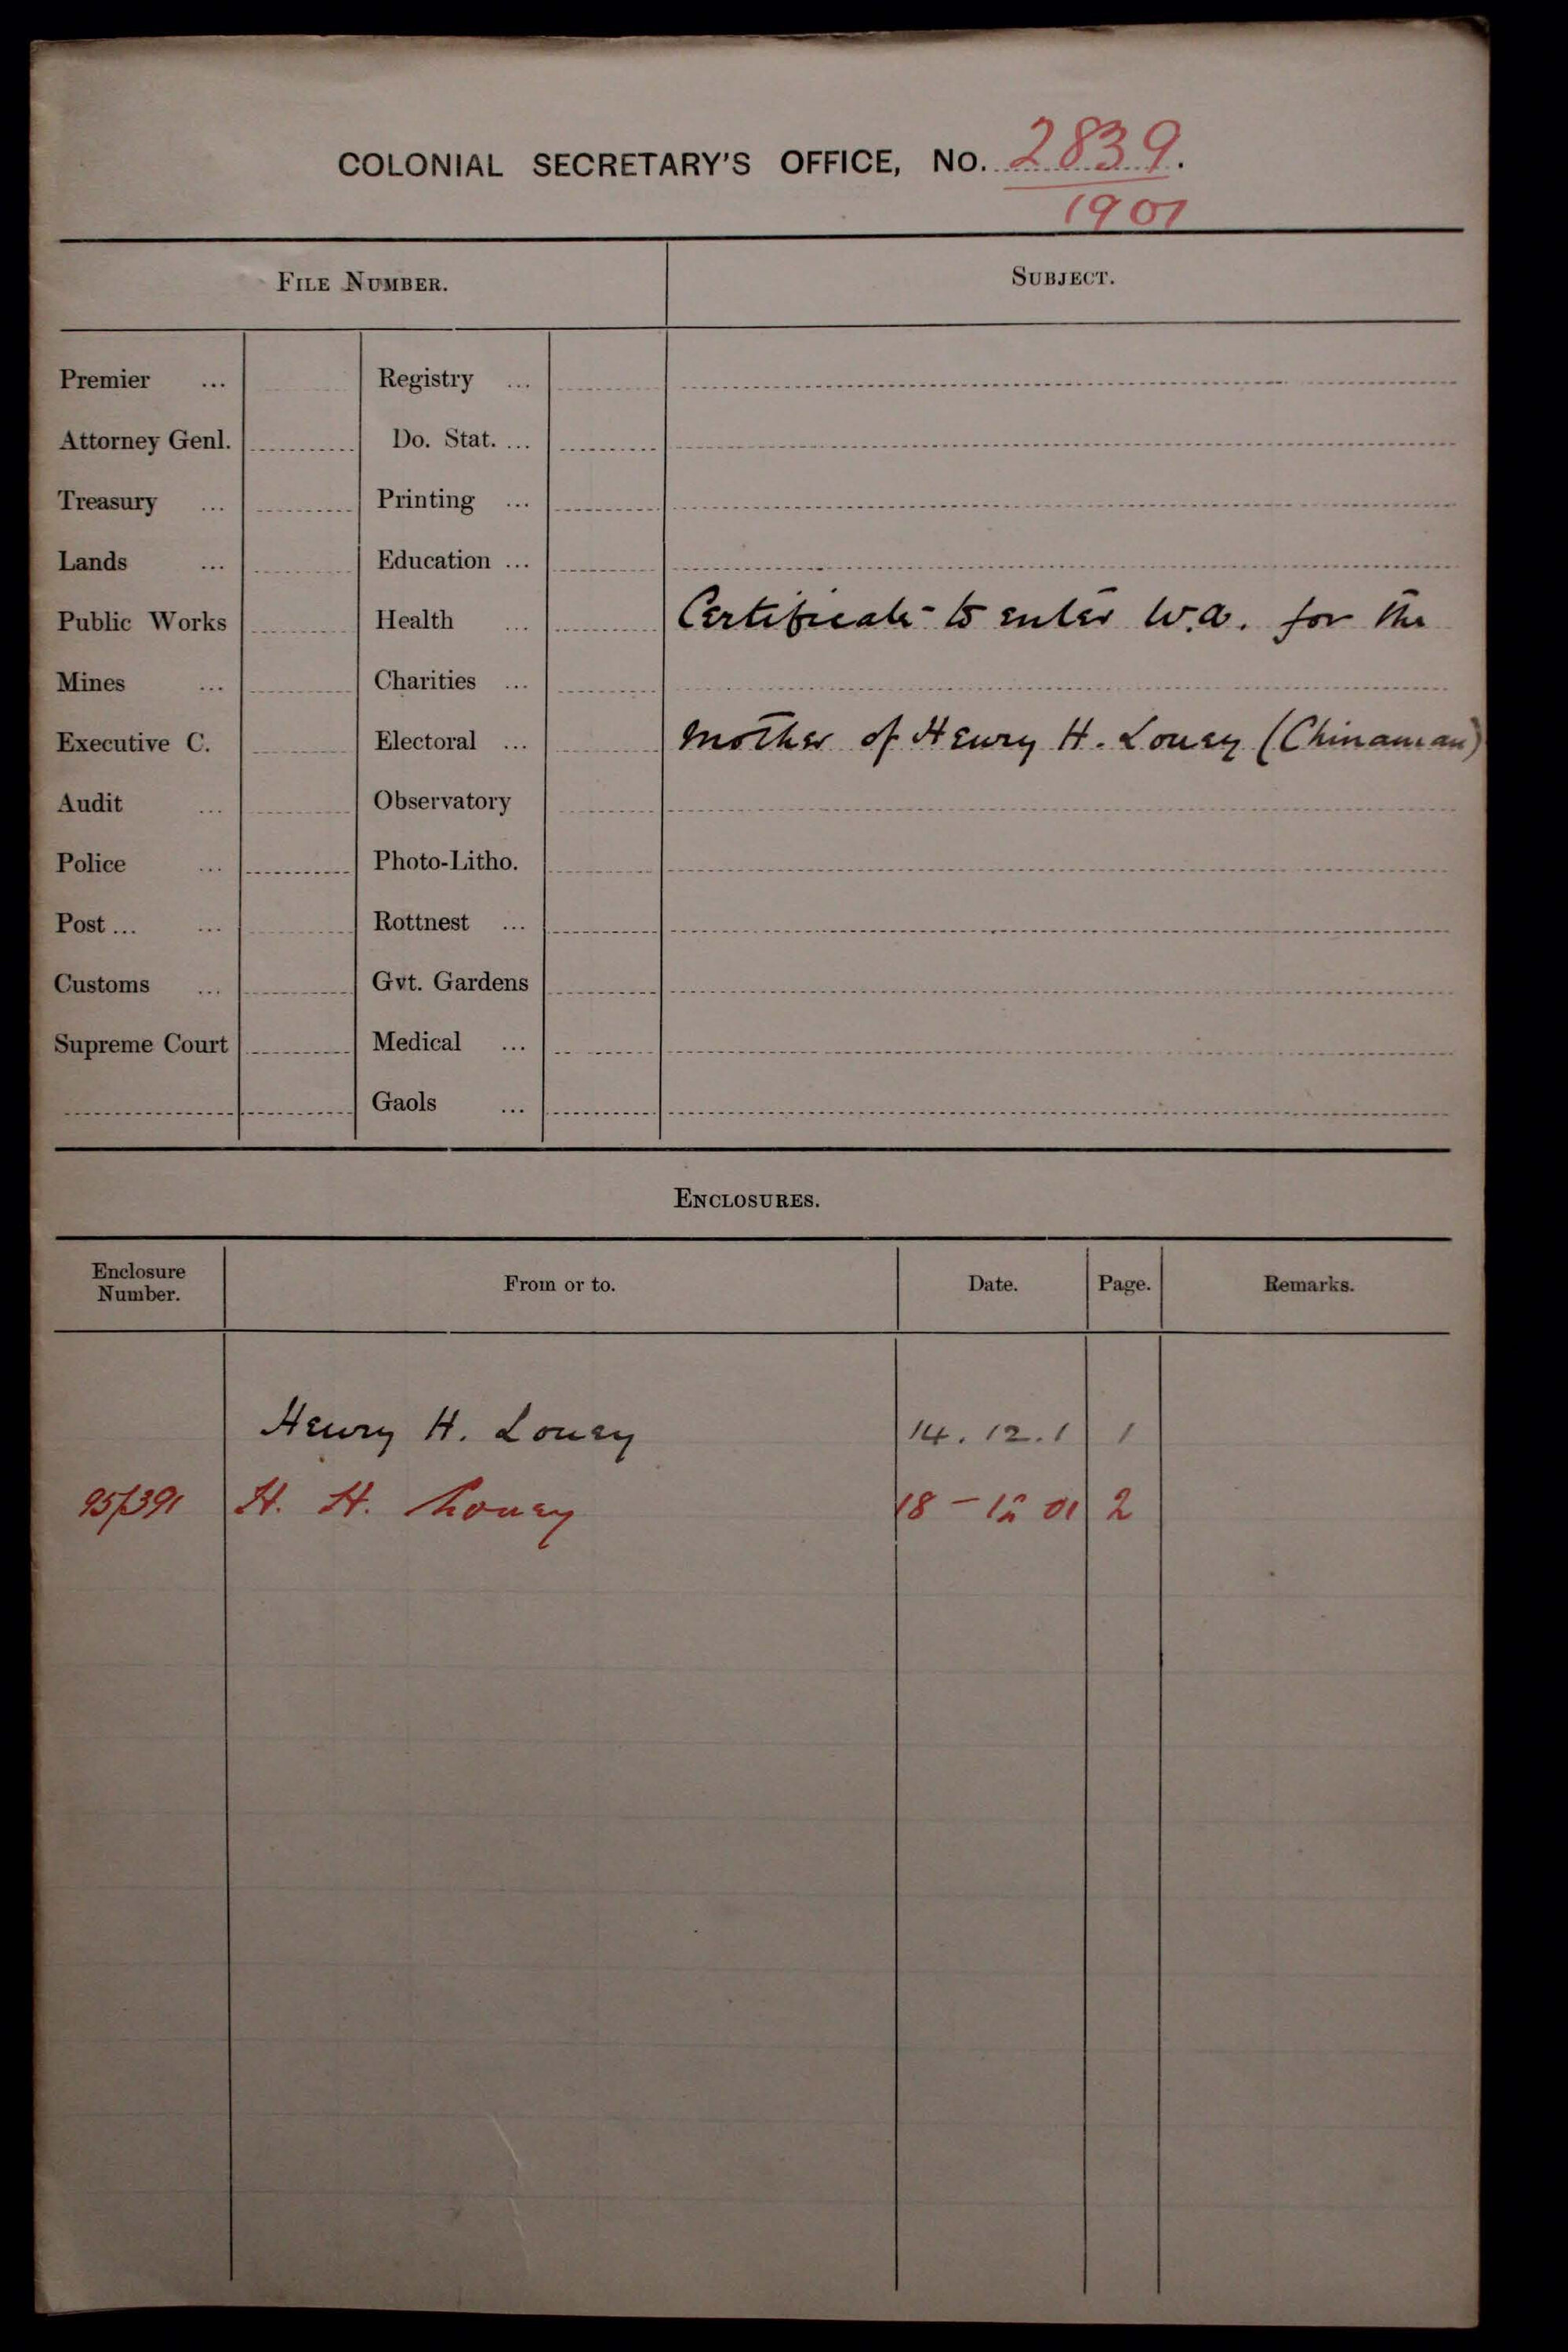 COLONIAL SECRETARY'S OFFICE, NO. 2839.
1901
FILE NUMBER. SUBJECT.
Premier ... Registry ...
Attorney Genl. Do. Stat. ...
Treasury ... Printing ...
Lands ... Education ...
Public Works Health ... Certificate to enter W.A. for the
Mines ... Charities ...
Executive C. Electoral ... Mother of Henry H. Louey (Chinaman)
Audit ... Observatory
Police ... Photo-Litho.
Post ... ... Rottnest ...
Customs ... Gvt. Gardens
Supreme Court Medical ...
Gaols ...
ENCLOSURES.
Enclosure Number. From or to. Date. Page. Remarks.
Henry H. Louey 14.12.1 1
H. H. Louey 18-12 01 2